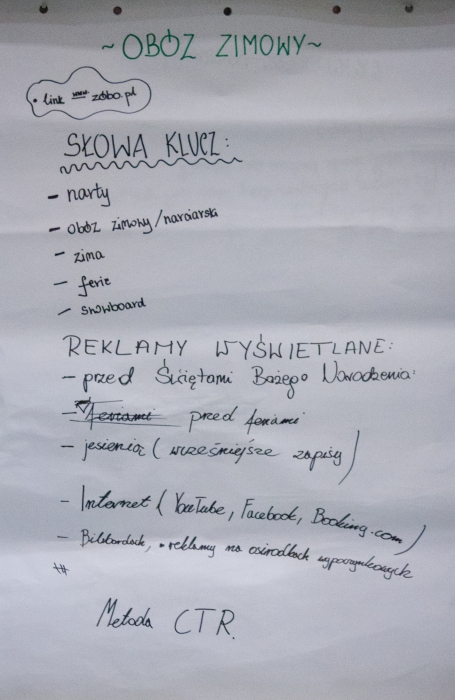 ~OBÓZ ZIMOWY~
• link www zobo.pl
SŁOWA KLUCZ:
- narty
- obóz zimowy/narciarski
- zima
- ferie
- snowboard
REKLAMY WYŚWIETLANE:
- przed Świętami Bożego Narodzenia
- feriami przed feriami
- jesienią (wcześniejsze zapisy)
- Internet (YouTube, Facebook, Booking.com)
- Bilbordach, • reklamy na ośrodkach wypoczynkowych
Metoda CTR.